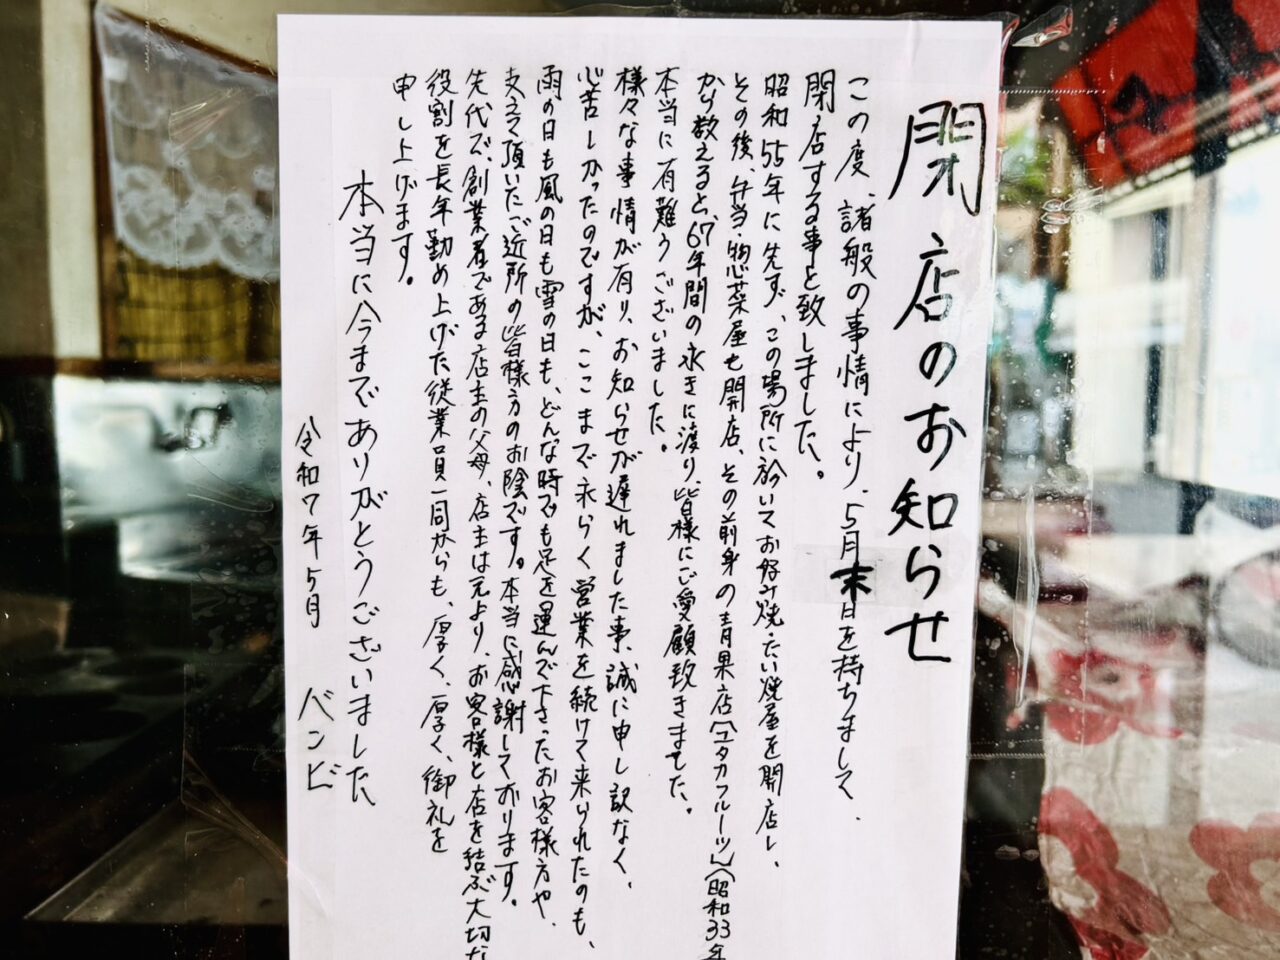 閉店のお知らせ
この度、諸般の事情により、5月末日を持ちまして、
閉店する事と致しました。
昭和55年に先ず、この場所に於いてお好み焼・たい焼屋を開店し、
その後、弁当・惣菜屋も開店、その前身の青果店(ユタカフルーツ)(昭和33年
から数えると、67年間の永きに渡り、皆様にご愛顧致きました。
本当に有難うございました。
様々な事情が有り、お知らせが遅れました事、誠に申し訳なく、
心苦しかったのですが、ここまで永らく営業を続けて来られたのも、
雨の日も風の日も雪の日も、どんな時でも足を運んで下さったお客様方や、
支えて頂いたご近所の皆様方のお陰です。本当に感謝しております。
先代で、創業者である店主の父母、店主は元より、お客様と店を結ぶ大切な
役割を長年勤め上げた従業員一同からも、厚く、厚く、御礼を
申し上げます。
本当に今までありがとうございました
令和7年5月 バンビ